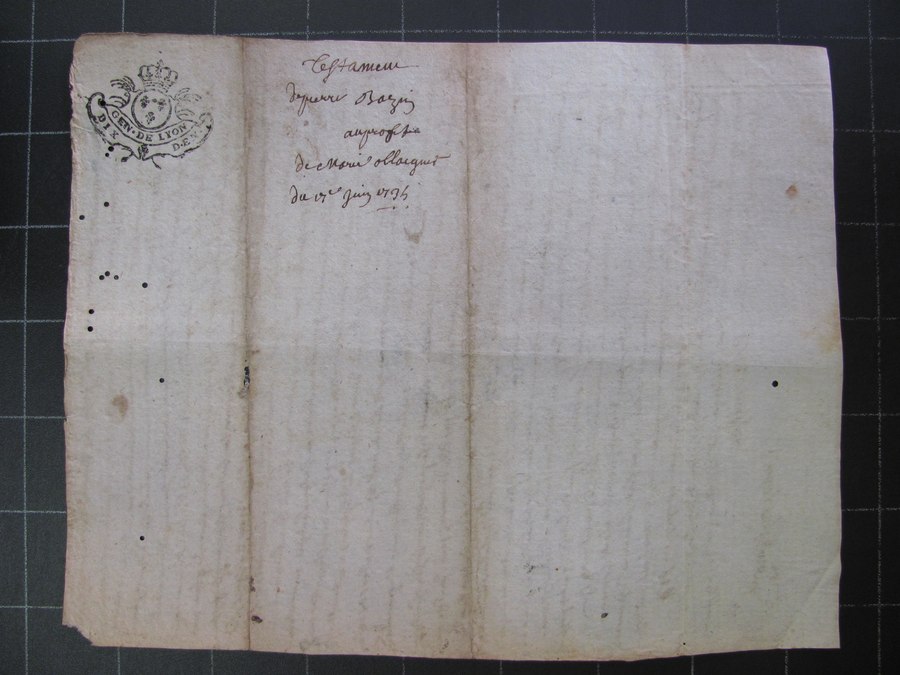 GEN. DE LYON
DIX D. EN.
Testament
de pierre Bazin
au profit de
de Marie
du juin